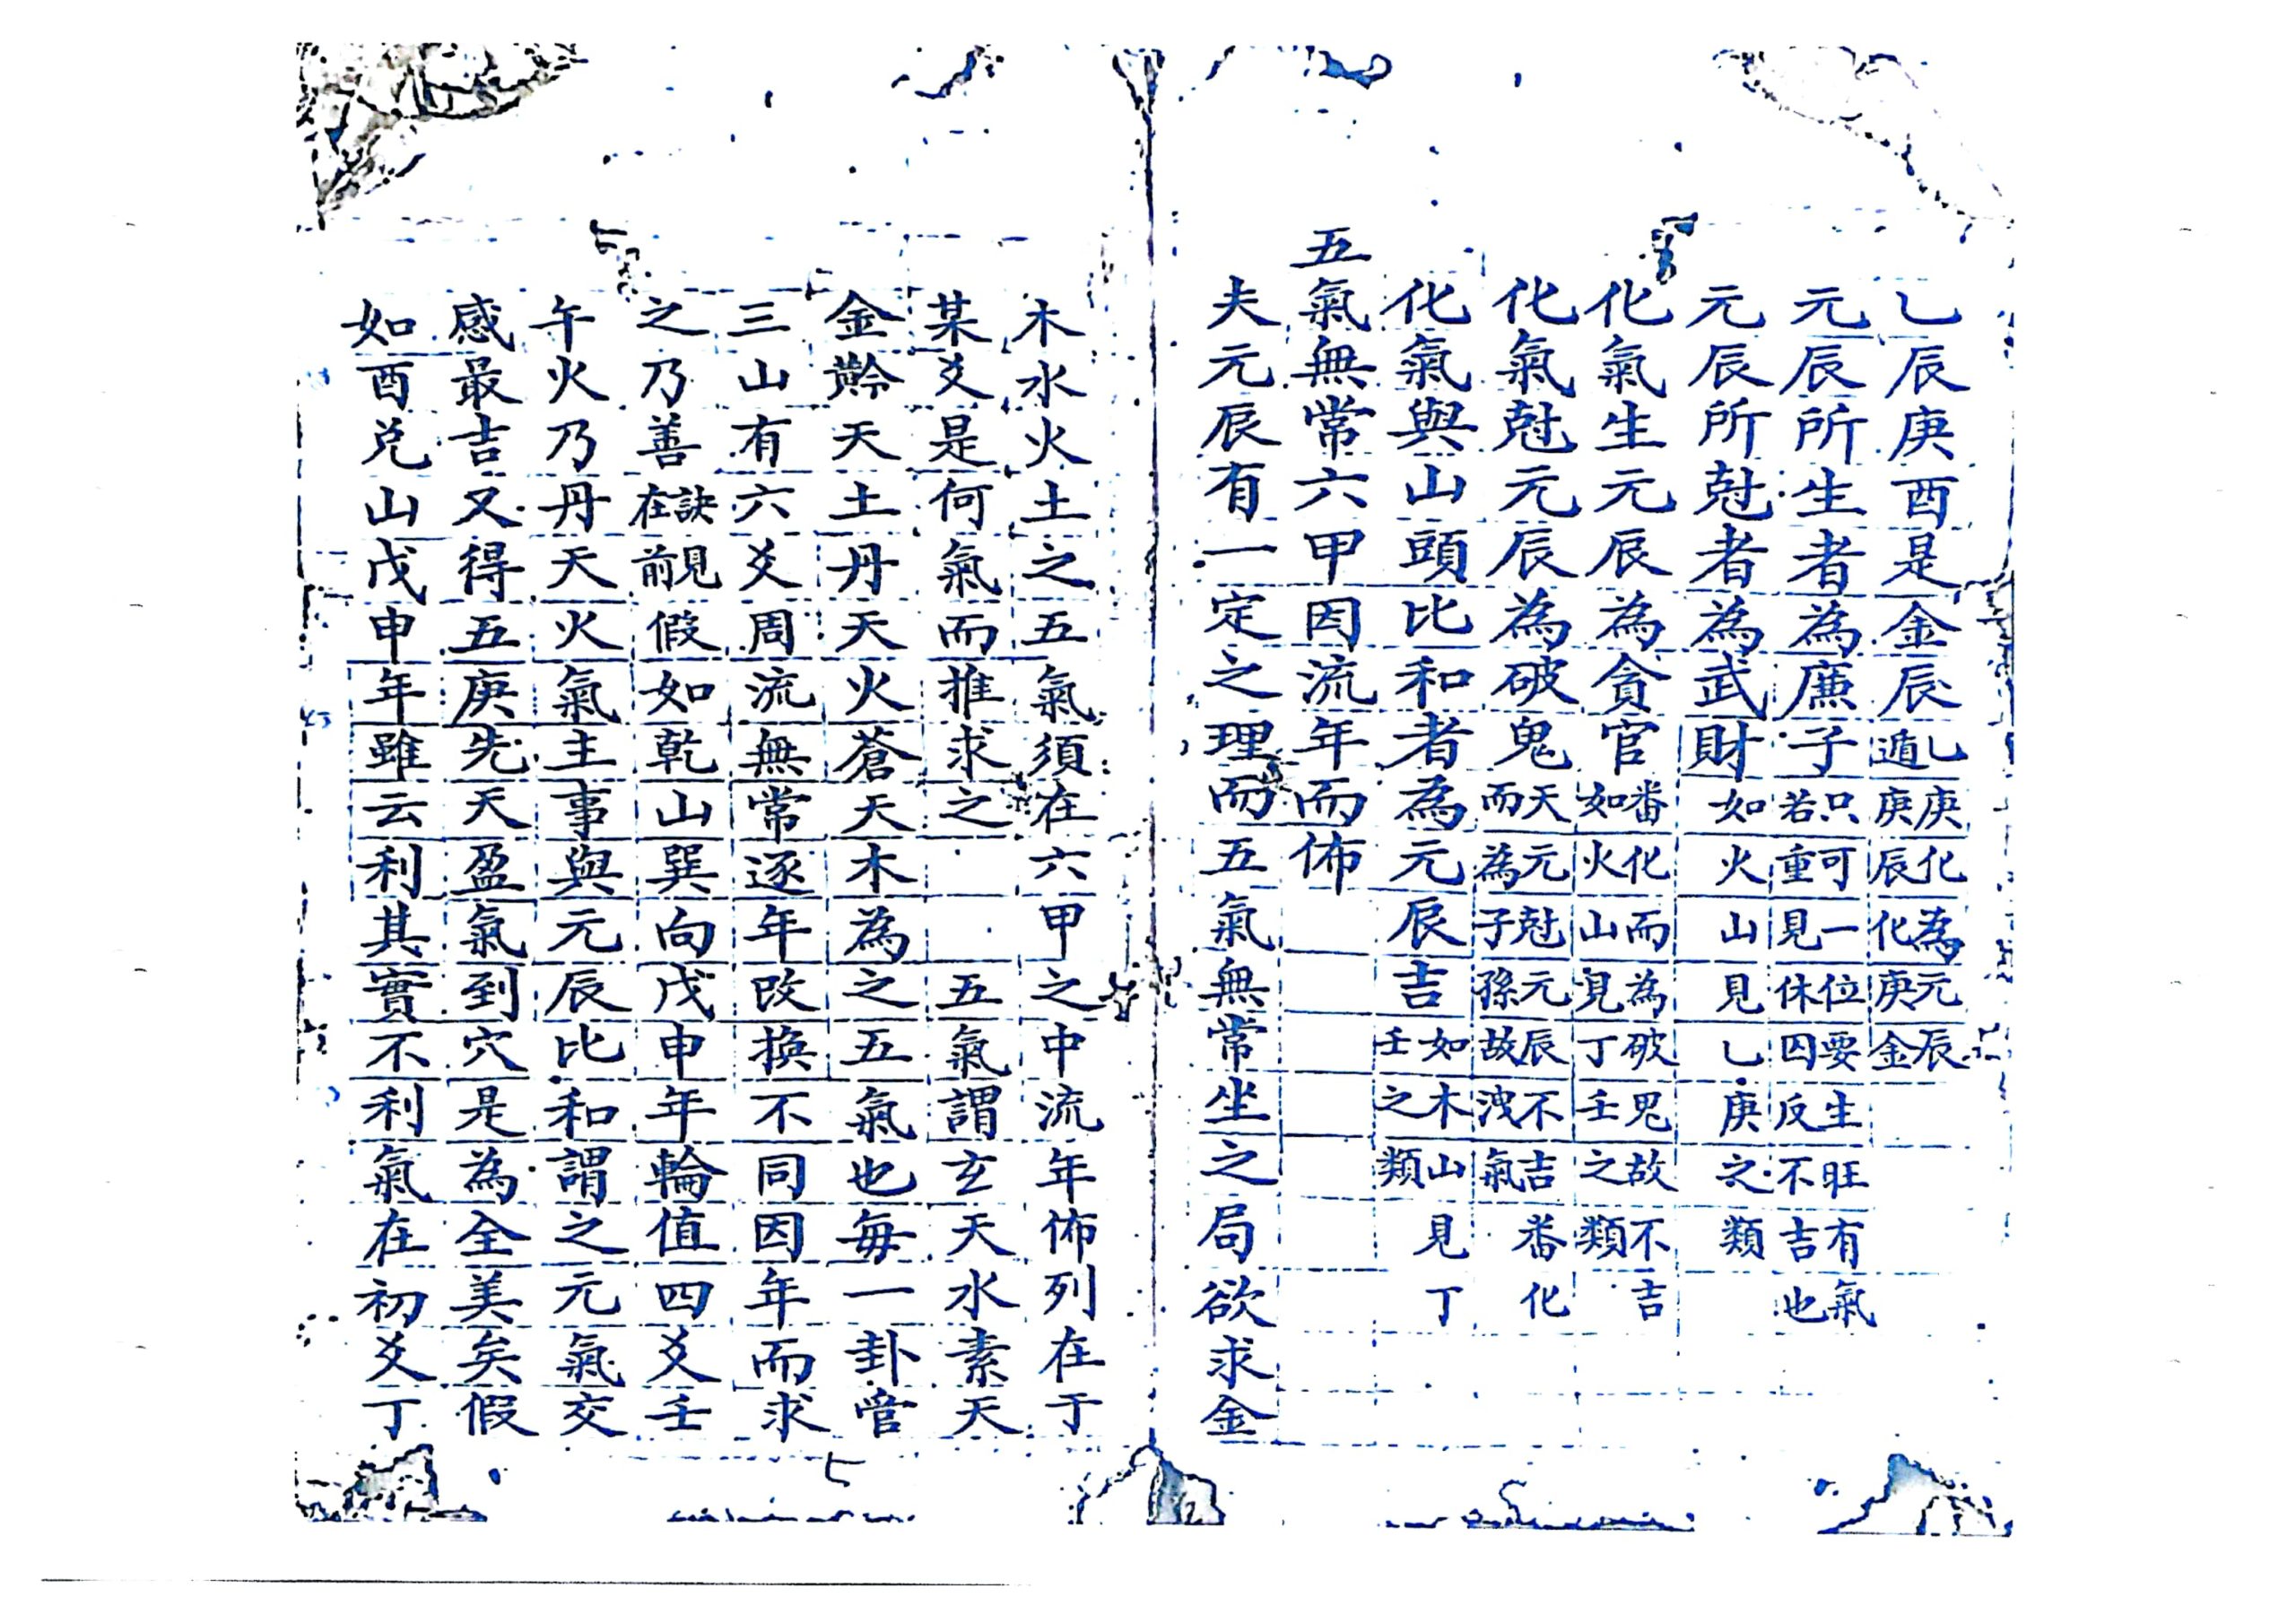 乙辰庚酉是金辰乙庚化為元辰遁庚辰化庚金
元辰所生者為廉子只可一位要生旺有氣若重見休囚反不吉也
元辰所尅者為武財如火山見乙庚之類
化氣生元辰為貪官番化而為破鬼故不吉如火山見丁壬之類
化氣尅元辰為破鬼天元尅元辰不吉番化而為子孫故洩氣
化氣與山頭比和者為元辰吉如木山見丁壬之類
五氣無常六甲因流年而佈
夫元辰有一定之理而五氣無常坐之局欲求金
木水火土之五氣須在六甲之中流年佈列在于
某爻是何氣而推求之 五氣謂玄天水素天
金黅天土丹天火蒼天木為之五氣也每一卦管
三山有六爻周流無常逐年改換不同因年而求
之乃善訣見在前假如乾山巽向戊申年輪值四爻壬
午火乃丹天火氣主事與元辰比和謂之元氣交
感最吉又得五庚先天盈氣到穴是為全美矣假
如酉兌山戊申年雖云利其實不利氣在初爻丁